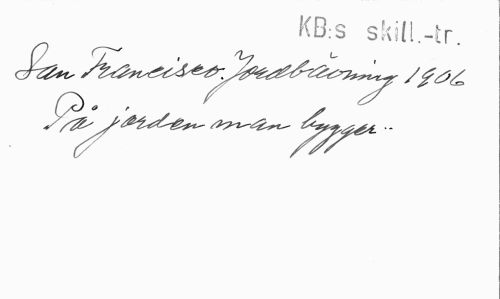 KB:s skill.-tr.
San Francisco. Jordbävning 1906
På jorden man bygger..